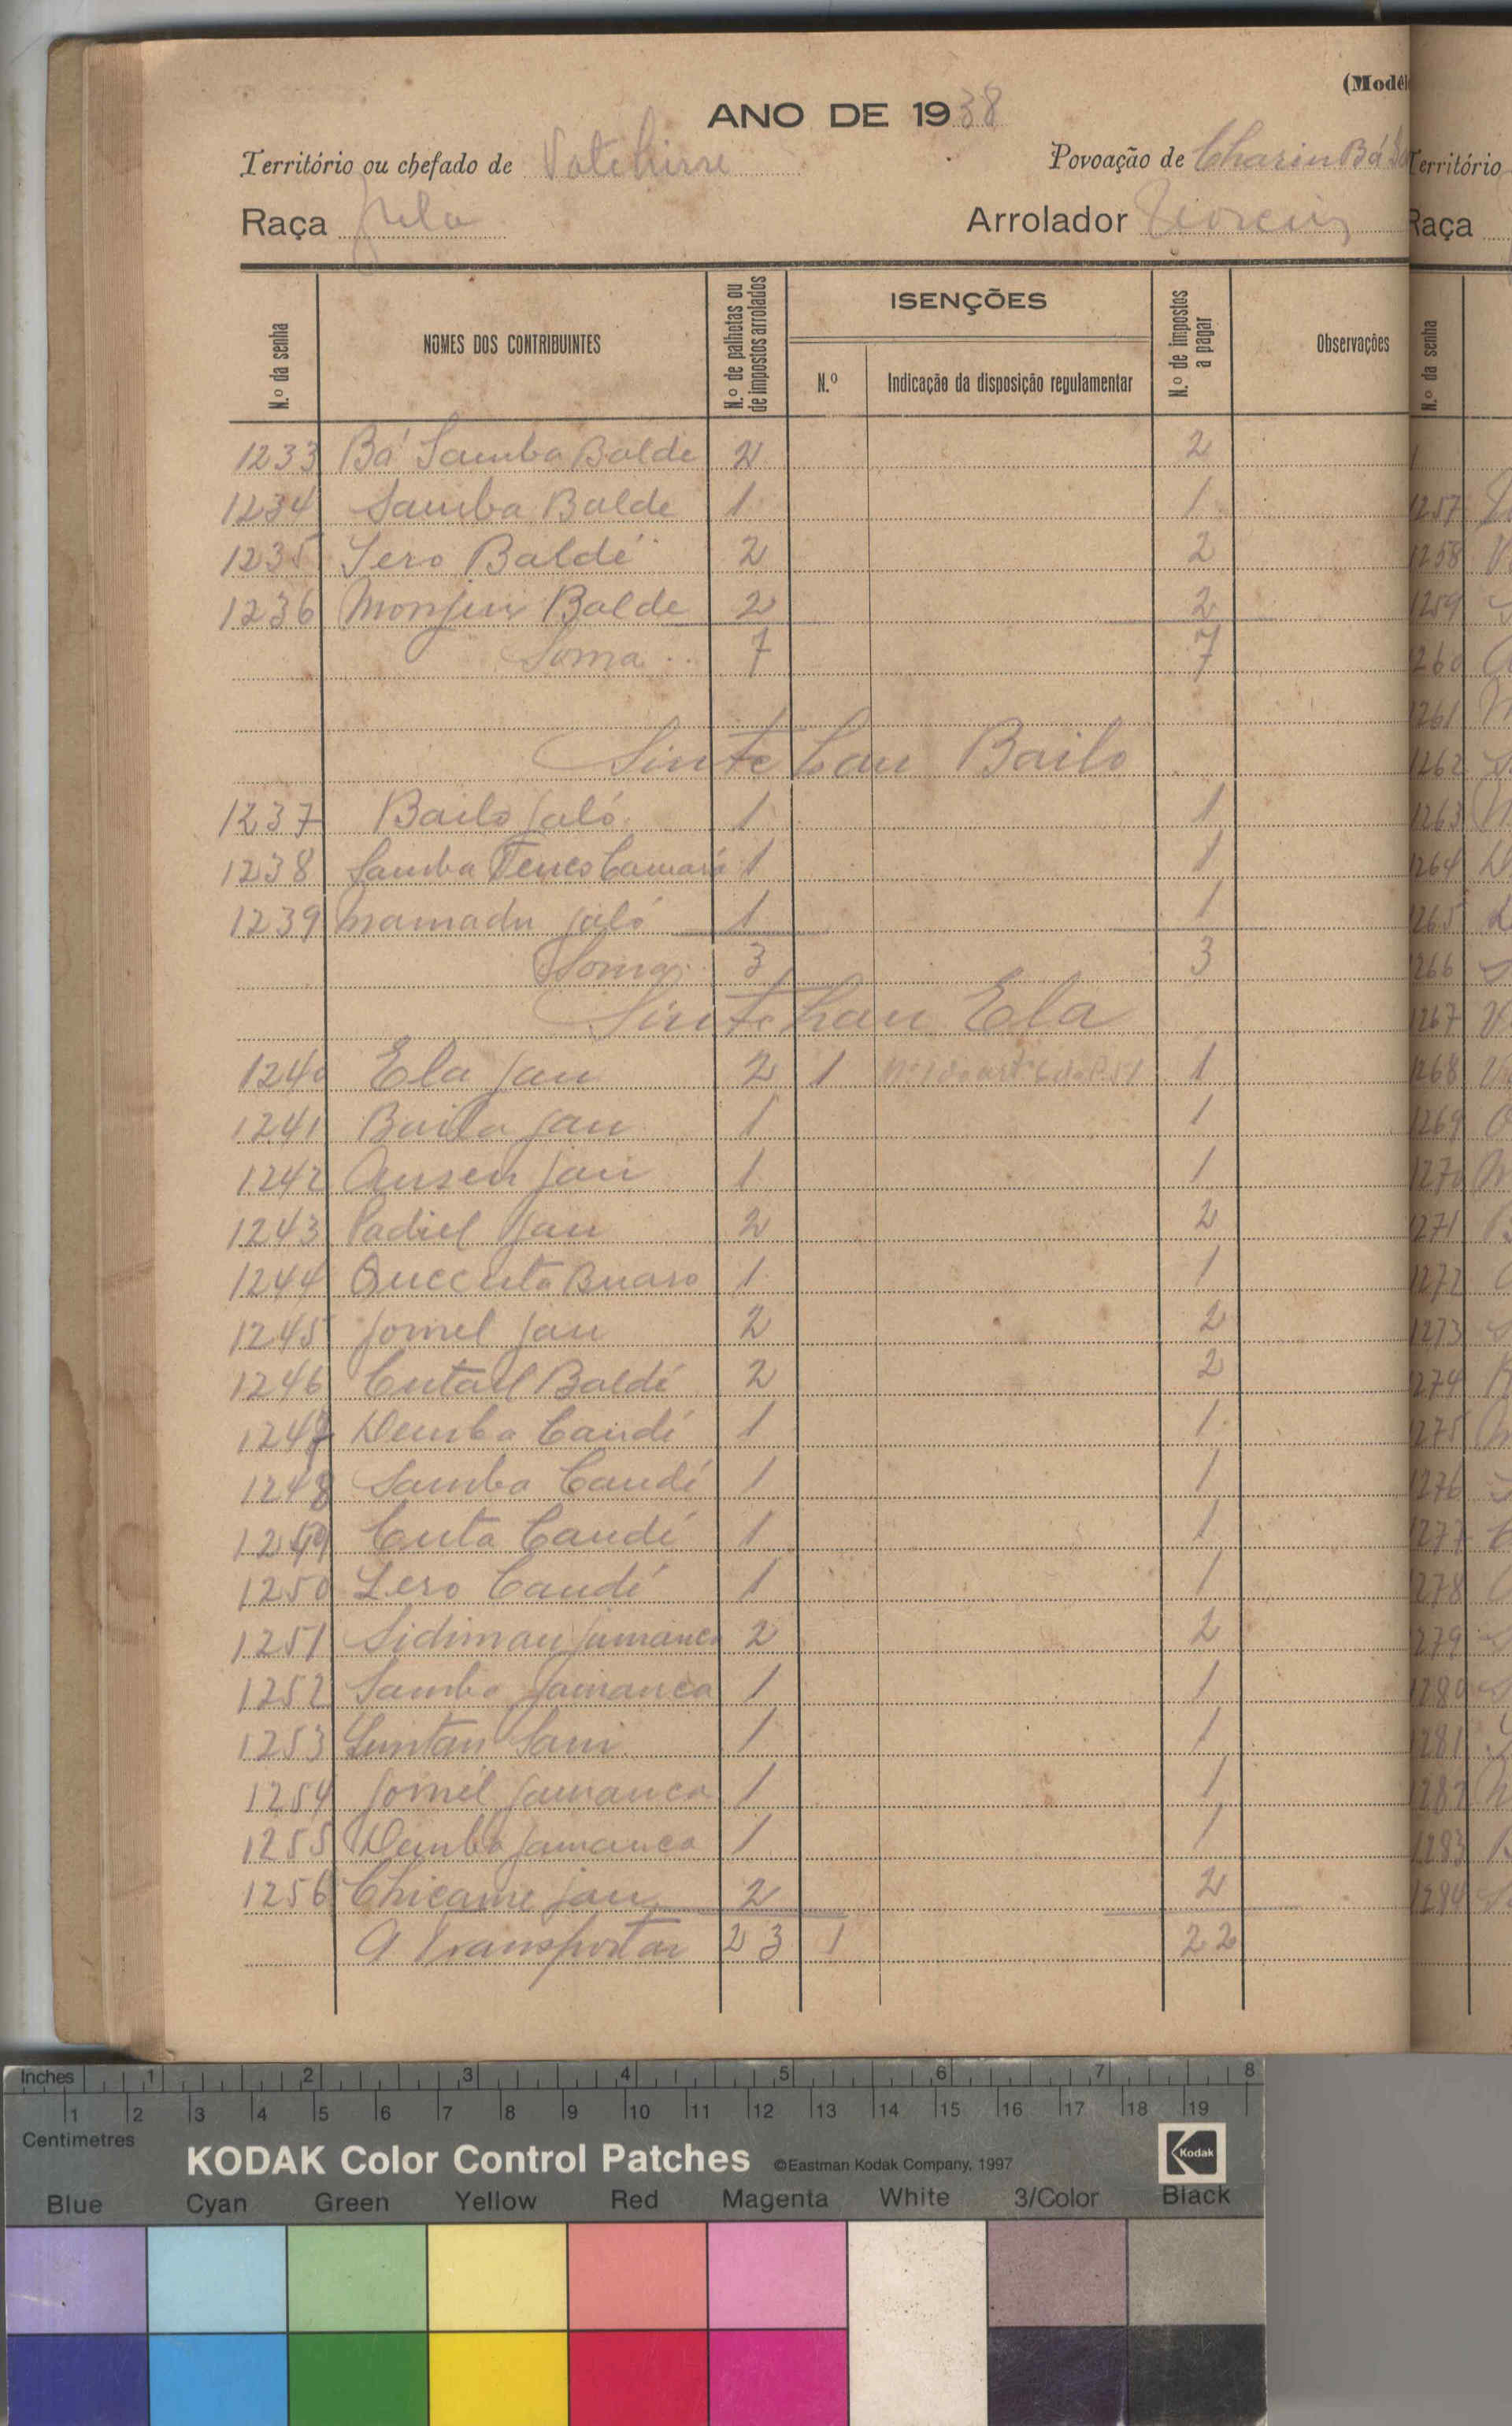 (Modêl
ANO DE 1938
Território ou chefado de
Povoação de Charin Bá
Raça Fula
Arrolador
N.º da senha
NOMES DOS CONTRIBUINTES
N.º de palhotas ou de impostos arrolados
ISENÇÕES
N.º
Indicação da disposição regulamentar
N.º de impostos a pagar
Observações
1233 Bá Samba Balde 2 2
1234 Samba Balde 1 1
1235 Sero Baldé 2 2
1236 Balde 2 2
Soma 7 7
Sintchan Bailo
1237 Bailo Jaló 1 1
1238 Samba Camará 1 1
1239 Mamadu Jaló 1 1
Soma 3 3
Sintchan Ela
1240 Ela Jau 2 1 1
1241 Baila Jau 1 1
1242 Jau 1 1
1243 Padiel Jau 2 2
1244 Quecuta 1 1
1245 Jomel Jau 2 2
1246 Cutael Baldé 2 2
1247 Demba Candé 1 1
1248 Samba Candé 1 1
1249 Cuta Candé 1 1
1250 Sero Candé 1 1
1251 Jamanca 2 2
1252 Samba Jamanca 1 1
1253 1 1
1254 Jomel Jamanca 1 1
1255 Demba Jamanca 1 1
1256 Jau 2 2
A transportar 23 1 22
Território
Raça
N.º da senha
1257
1258
1259
1260
1261
1262
1263
1264
1265
1266
1267
1268
1269
1270
1271
1272
1273
1274
1275
1276
1277
1278
1279
1280
1281
1282
1283
1284
Inches 1 2 3 4 5 6 7 8
1 2 3 4 5 6 7 8 9 10 11 12 13 14 15 16 17 18 19
Centimetres
KODAK Color Control Patches ©Eastman Kodak Company, 1997 Kodak
Blue Cyan Green Yellow Red Magenta White 3/Color Black